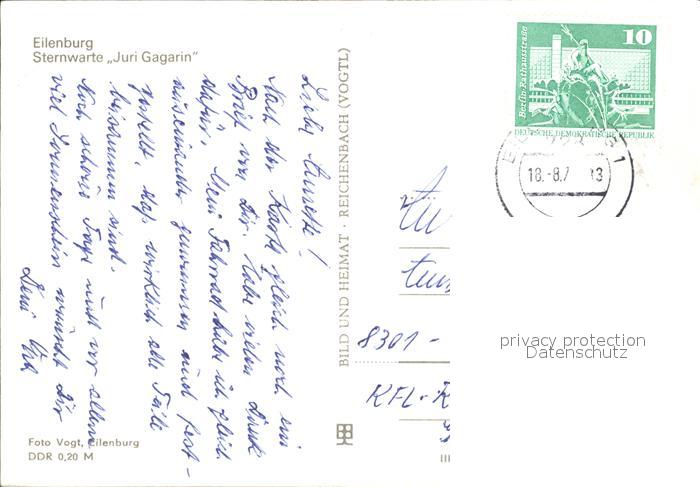 Eilenburg
Sternwarte „Juri Gagarin“
Liebe Annette!
Nach der Karte gleich noch ein
Brief von Dir. Habe vielen Dank
dafür. Mein Fahrrad habe ich gleich
auseinander genommen und fest-
gestellt, daß wirklich alle Teile
beisammen sind.
Noch schöne Tage und vor allem
viel Sonnenschein wünscht Dir
Dein
Foto Vogt, Eilenburg
DDR 0,20 M
BILD UND HEIMAT · REICHENBACH (VOGTL)
III
10
Berlin·Rathausstraße
DEUTSCHE DEMOKRATISCHE REPUBLIK
18.-8.7 13
1
8301 -
KFL-K
privacy protection
Datenschutz